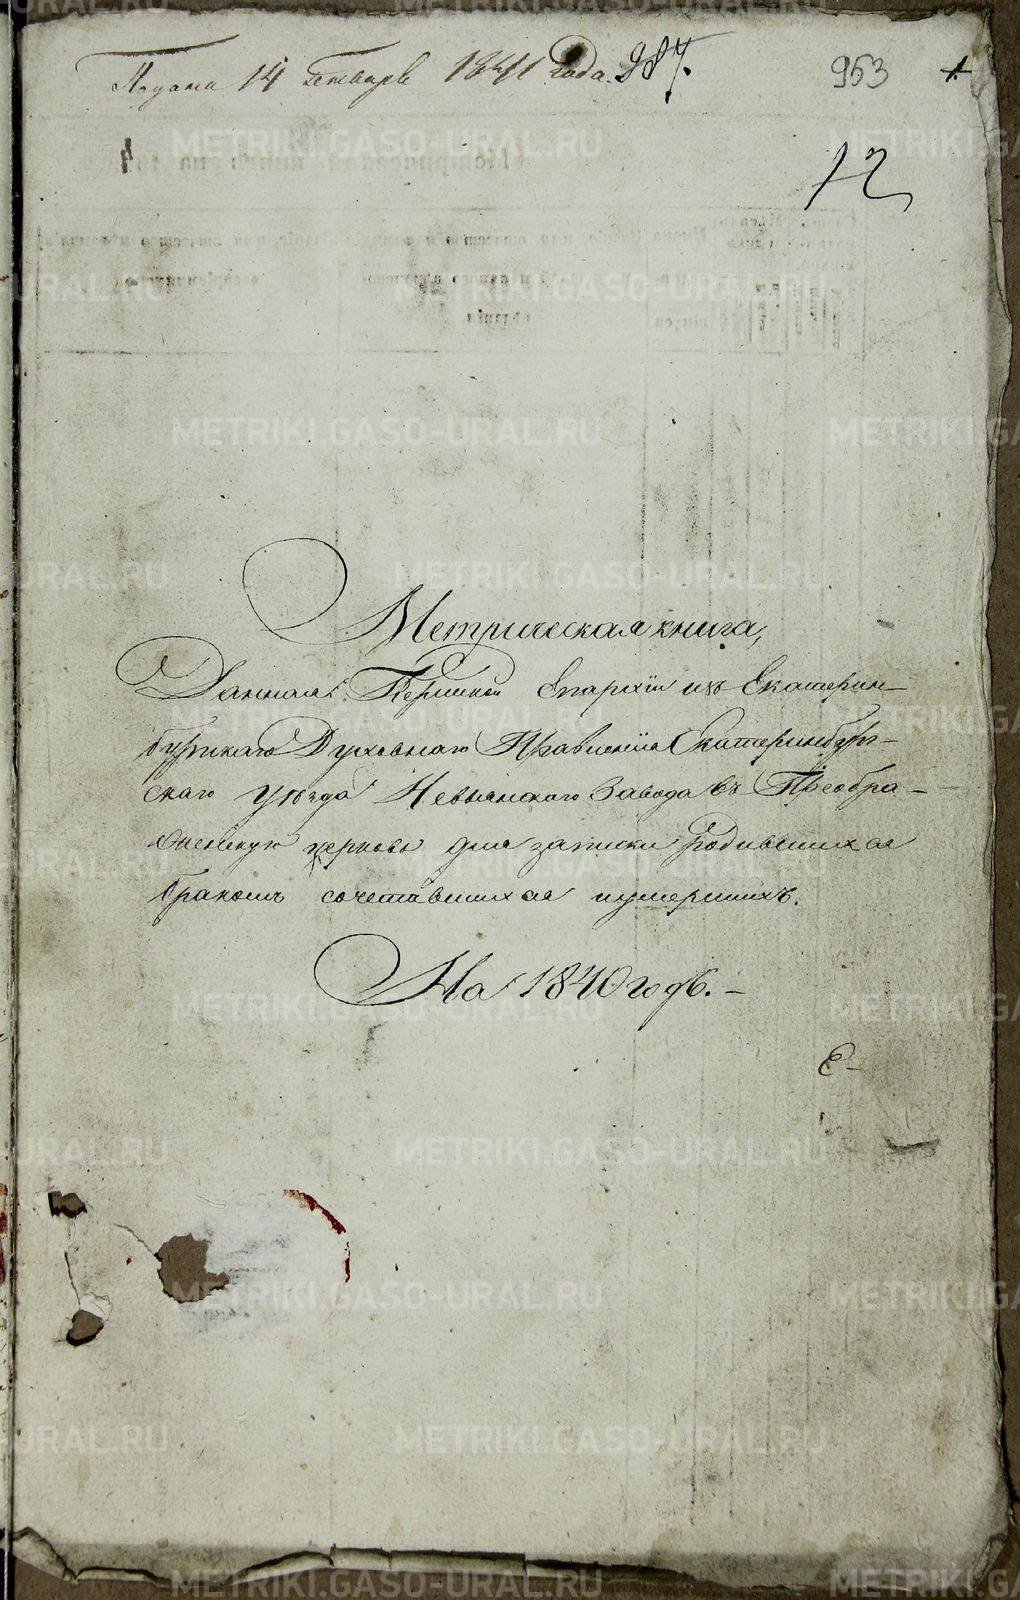 Подана 14 Генваря 1841 года. 987.
953
1.
12
Метрическая книга,
Данная Пермской Епархіи изъ Екатерин-
бургскаго Духовнаго Правленія Екатеринбург-
скаго уѣзда Невьянскаго завода въ Преобра-
женскую церковь для записки родившихся
бракомъ сочетавшихся и умершихъ.
На 1840 годъ. –
METRIKI.GASO-URAL.RU